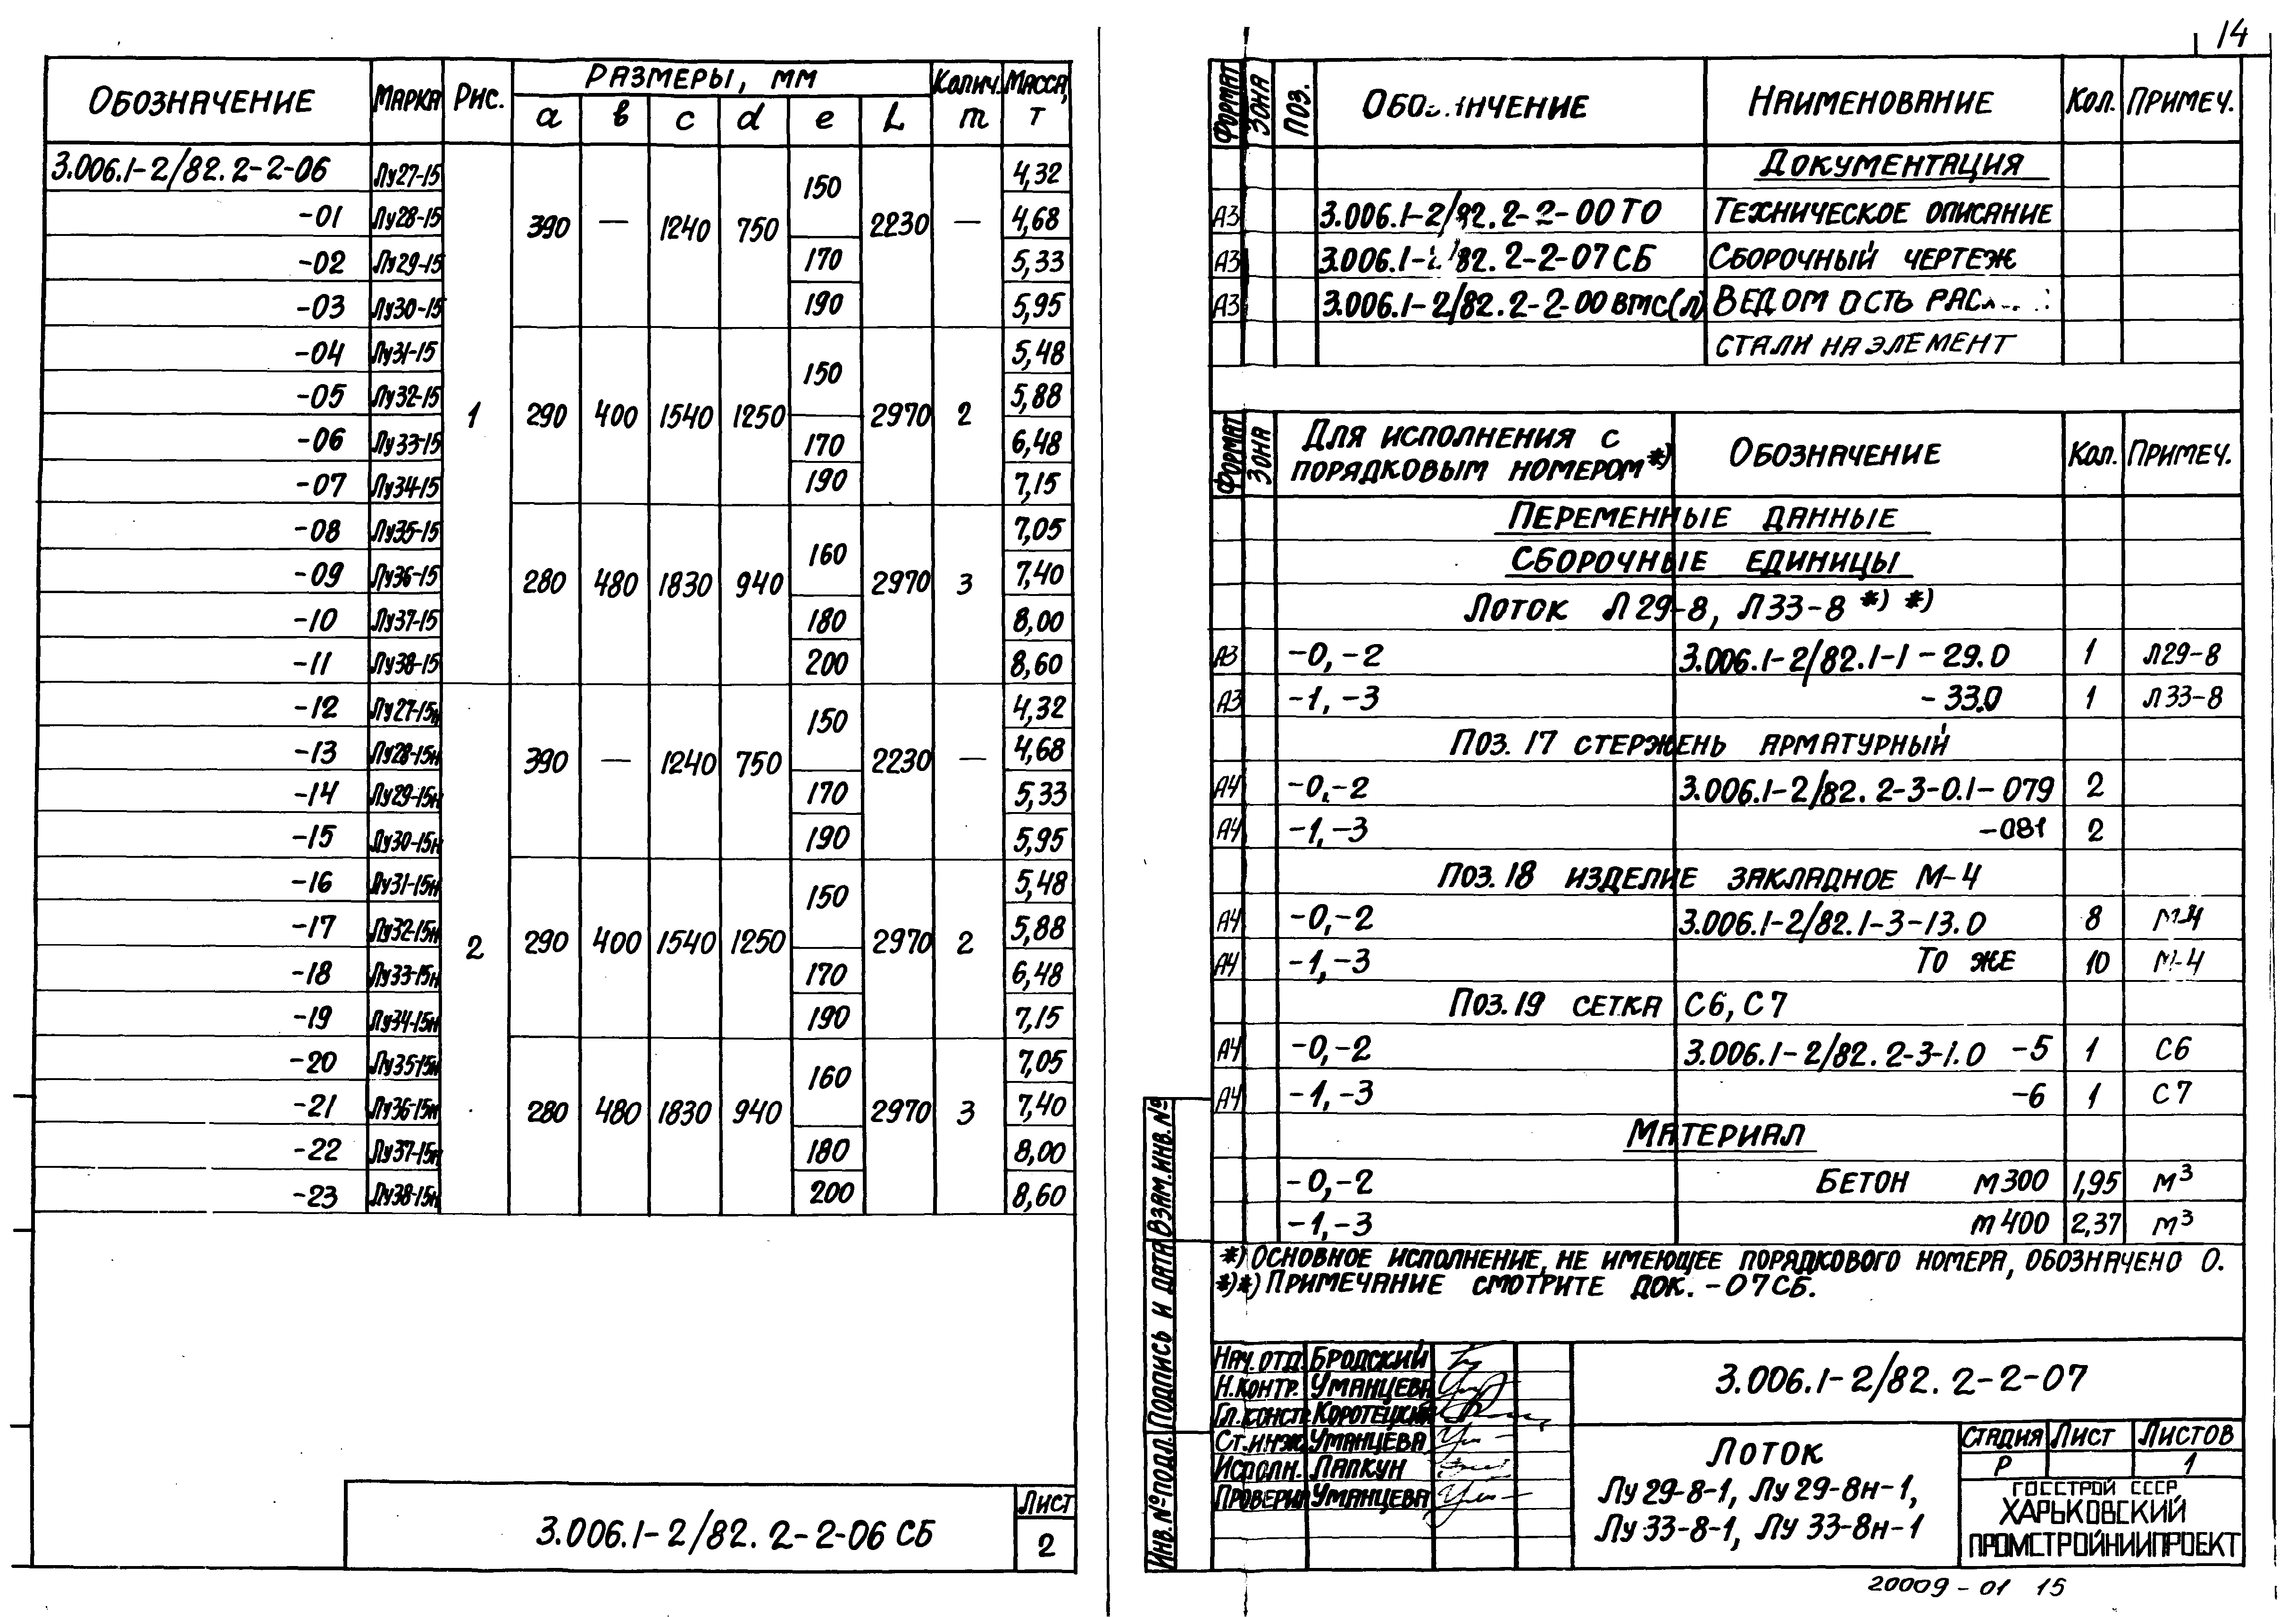 14
ОБОЗНАЧЕНИЕ МАРКА РИС. РАЗМЕРЫ, ММ КОЛИЧ. МАССА,
a в c d e L m Т
3.006.1-2/82.2-2-06 Лу27-15 150 4,32
-01 Лу28-15 390 — 1240 750 2230 — 4,68
-02 Лу29-15 170 5,33
-03 Лу30-15 190 5,95
-04 Лу31-15 150 5,48
-05 Лу32-15 1 290 400 1540 1250 2970 2 5,88
-06 Лу33-15 170 6,48
-07 Лу34-15 190 7,15
-08 Лу35-15 160 7,05
-09 Лу36-15 280 480 1830 940 2970 3 7,40
-10 Лу37-15 180 8,00
-11 Лу38-15 200 8,60
-12 Лу27-15н 150 4,32
-13 Лу28-15н 390 — 1240 750 2230 — 4,68
-14 Лу29-15н 170 5,33
-15 Лу30-15н 190 5,95
-16 Лу31-15н 150 5,48
-17 Лу32-15н 2 290 400 1540 1250 2970 2 5,88
-18 Лу33-15н 170 6,48
-19 Лу34-15н 190 7,15
-20 Лу35-15н 160 7,05
-21 Лу36-15н 280 480 1830 940 2970 3 7,40
-22 Лу37-15н 180 8,00
-23 Лу38-15н 200 8,60
3.006.1-2/82. 2-2-06 СБ
ЛИСТ
2
ФОРМАТ ЗОНА ПОЗ. НАИМЕНОВАНИЕ КОЛ. ПРИМЕЧ.
ДОКУМЕНТАЦИЯ
А3 3.006.1-2/82.2-2-00 ТО ТЕХНИЧЕСКОЕ ОПИСАНИЕ
А3 3.006.1-2/82.2-2-07 СБ СБОРОЧНЫЙ ЧЕРТЕЖ
А3 3.006.1-2/82.2-2-00 ВМС(Л) ВЕДОМОСТЬ
СТАЛИ НА ЭЛЕМЕНТ
ФОРМАТ ЗОНА ДЛЯ ИСПОЛНЕНИЯ С ПОРЯДКОВЫМ НОМЕРОМ*) ОБОЗНАЧЕНИЕ КОЛ. ПРИМЕЧ.
ПЕРЕМЕННЫЕ ДАННЫЕ
СБОРОЧНЫЕ ЕДИНИЦЫ
ЛОТОК Л29-8, Л33-8 *) *)
А3 -0, -2 3.006.1-2/82.1-1-29.0 1 Л29-8
А3 -1, -3 -33.0 1 Л33-8
ПОЗ. 17 СТЕРЖЕНЬ АРМАТУРНЫЙ
А4 -0,-2 3.006.1-2/82. 2-3-0.1-079 2
А4 -1,-3 -081 2
ПОЗ.18 ИЗДЕЛИЕ ЗАКЛАДНОЕ М-4
А4 -0,-2 3.006.1-2/82.1-3-13.0 8 М-4
А4 -1,-3 ТО ЖЕ 10 М-4
ПОЗ.19 СЕТКА С6, С7
А4 -0,-2 3.006.1-2/82. 2-3-1.0 -5 1 С6
А4 -1,-3 -6 1 С7
МАТЕРИАЛ
-0,-2 БЕТОН М300 1,95 М³
-1,-3 М400 2,37 М³
*) ОСНОВНОЕ ИСПОЛНЕНИЕ, НЕ ИМЕЮЩЕЕ ПОРЯДКОВОГО НОМЕРА, ОБОЗНАЧЕНО 0.
*)*) ПРИМЕЧАНИЕ СМОТРИТЕ ДОК. -07СБ.
ИНВ.№ПОДЛ. ПОДПИСЬ И ДАТА ВЗАМ.ИНВ.№
НАЧ.ОТД. БРОДСКИЙ
Н.КОНТР. УМАНЦЕВА
ГЛ.КОНСТР. КОРОТЕЦКИЙ
СТ.ИНЖ. УМАНЦЕВА
ИСПОЛН. ЛАПКУН
ПРОВЕРИЛ УМАНЦЕВА
3.006.1-2/82. 2-2-07
ЛОТОК
Лу 29-8-1, Лу 29-8н-1,
Лу 33-8-1, Лу 33-8н-1
СТАДИЯ ЛИСТ ЛИСТОВ
Р 1
ГОССТРОЙ СССР
ХАРЬКОВСКИЙ
ПРОМСТРОЙНИИПРОЕКТ
20009-01 15